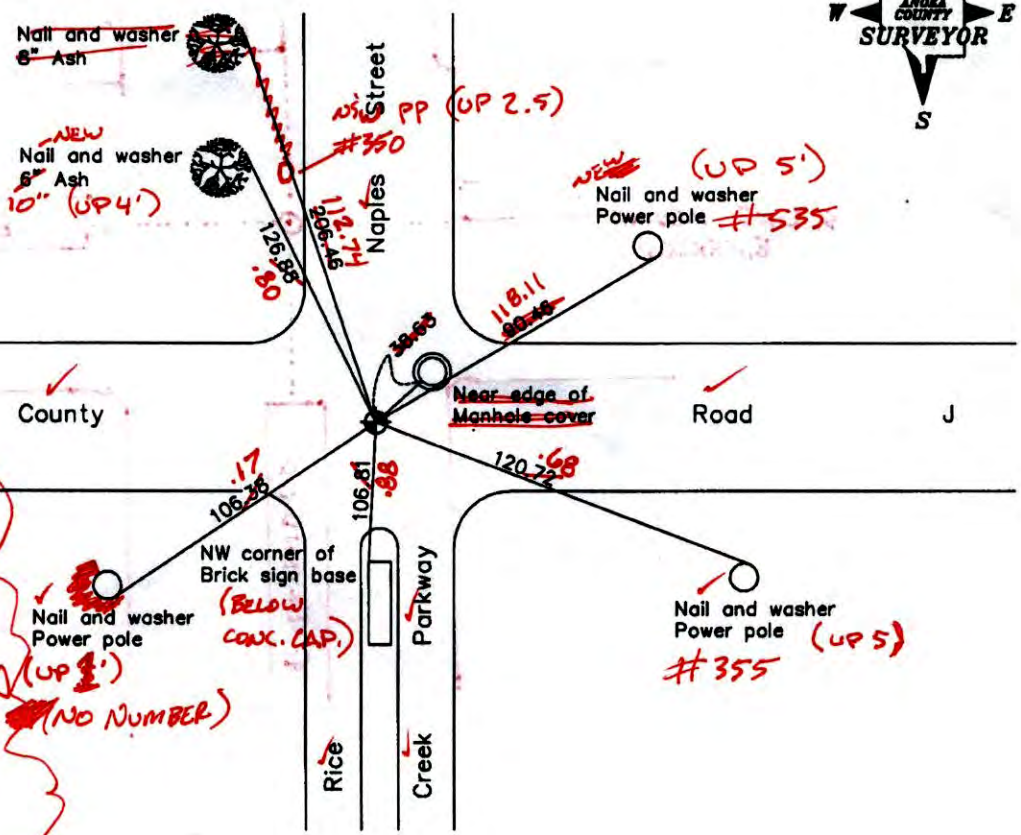 W ANOKA COUNTY E
SURVEYOR
S
Nail and washer
8" Ash
NEW
Nail and washer
6" Ash
10" (UP 4')
Street
Naples
PP (UP 2.5)
#350
NEW (UP 5')
Nail and washer
Power pole #535
126.88
.80
206.46
112.74
38.63
118.11
90.46
Near edge of
Manhole cover
County Road J
.17
106.38
106.81
.88
120.72
.68
NW corner of
Brick sign base
(BELOW
CONC. CAP.)
Nail and washer
Power pole
(UP 1')
(NO NUMBER)
Nail and washer
Power pole (UP 5)
#355
Rice
Creek
Parkway